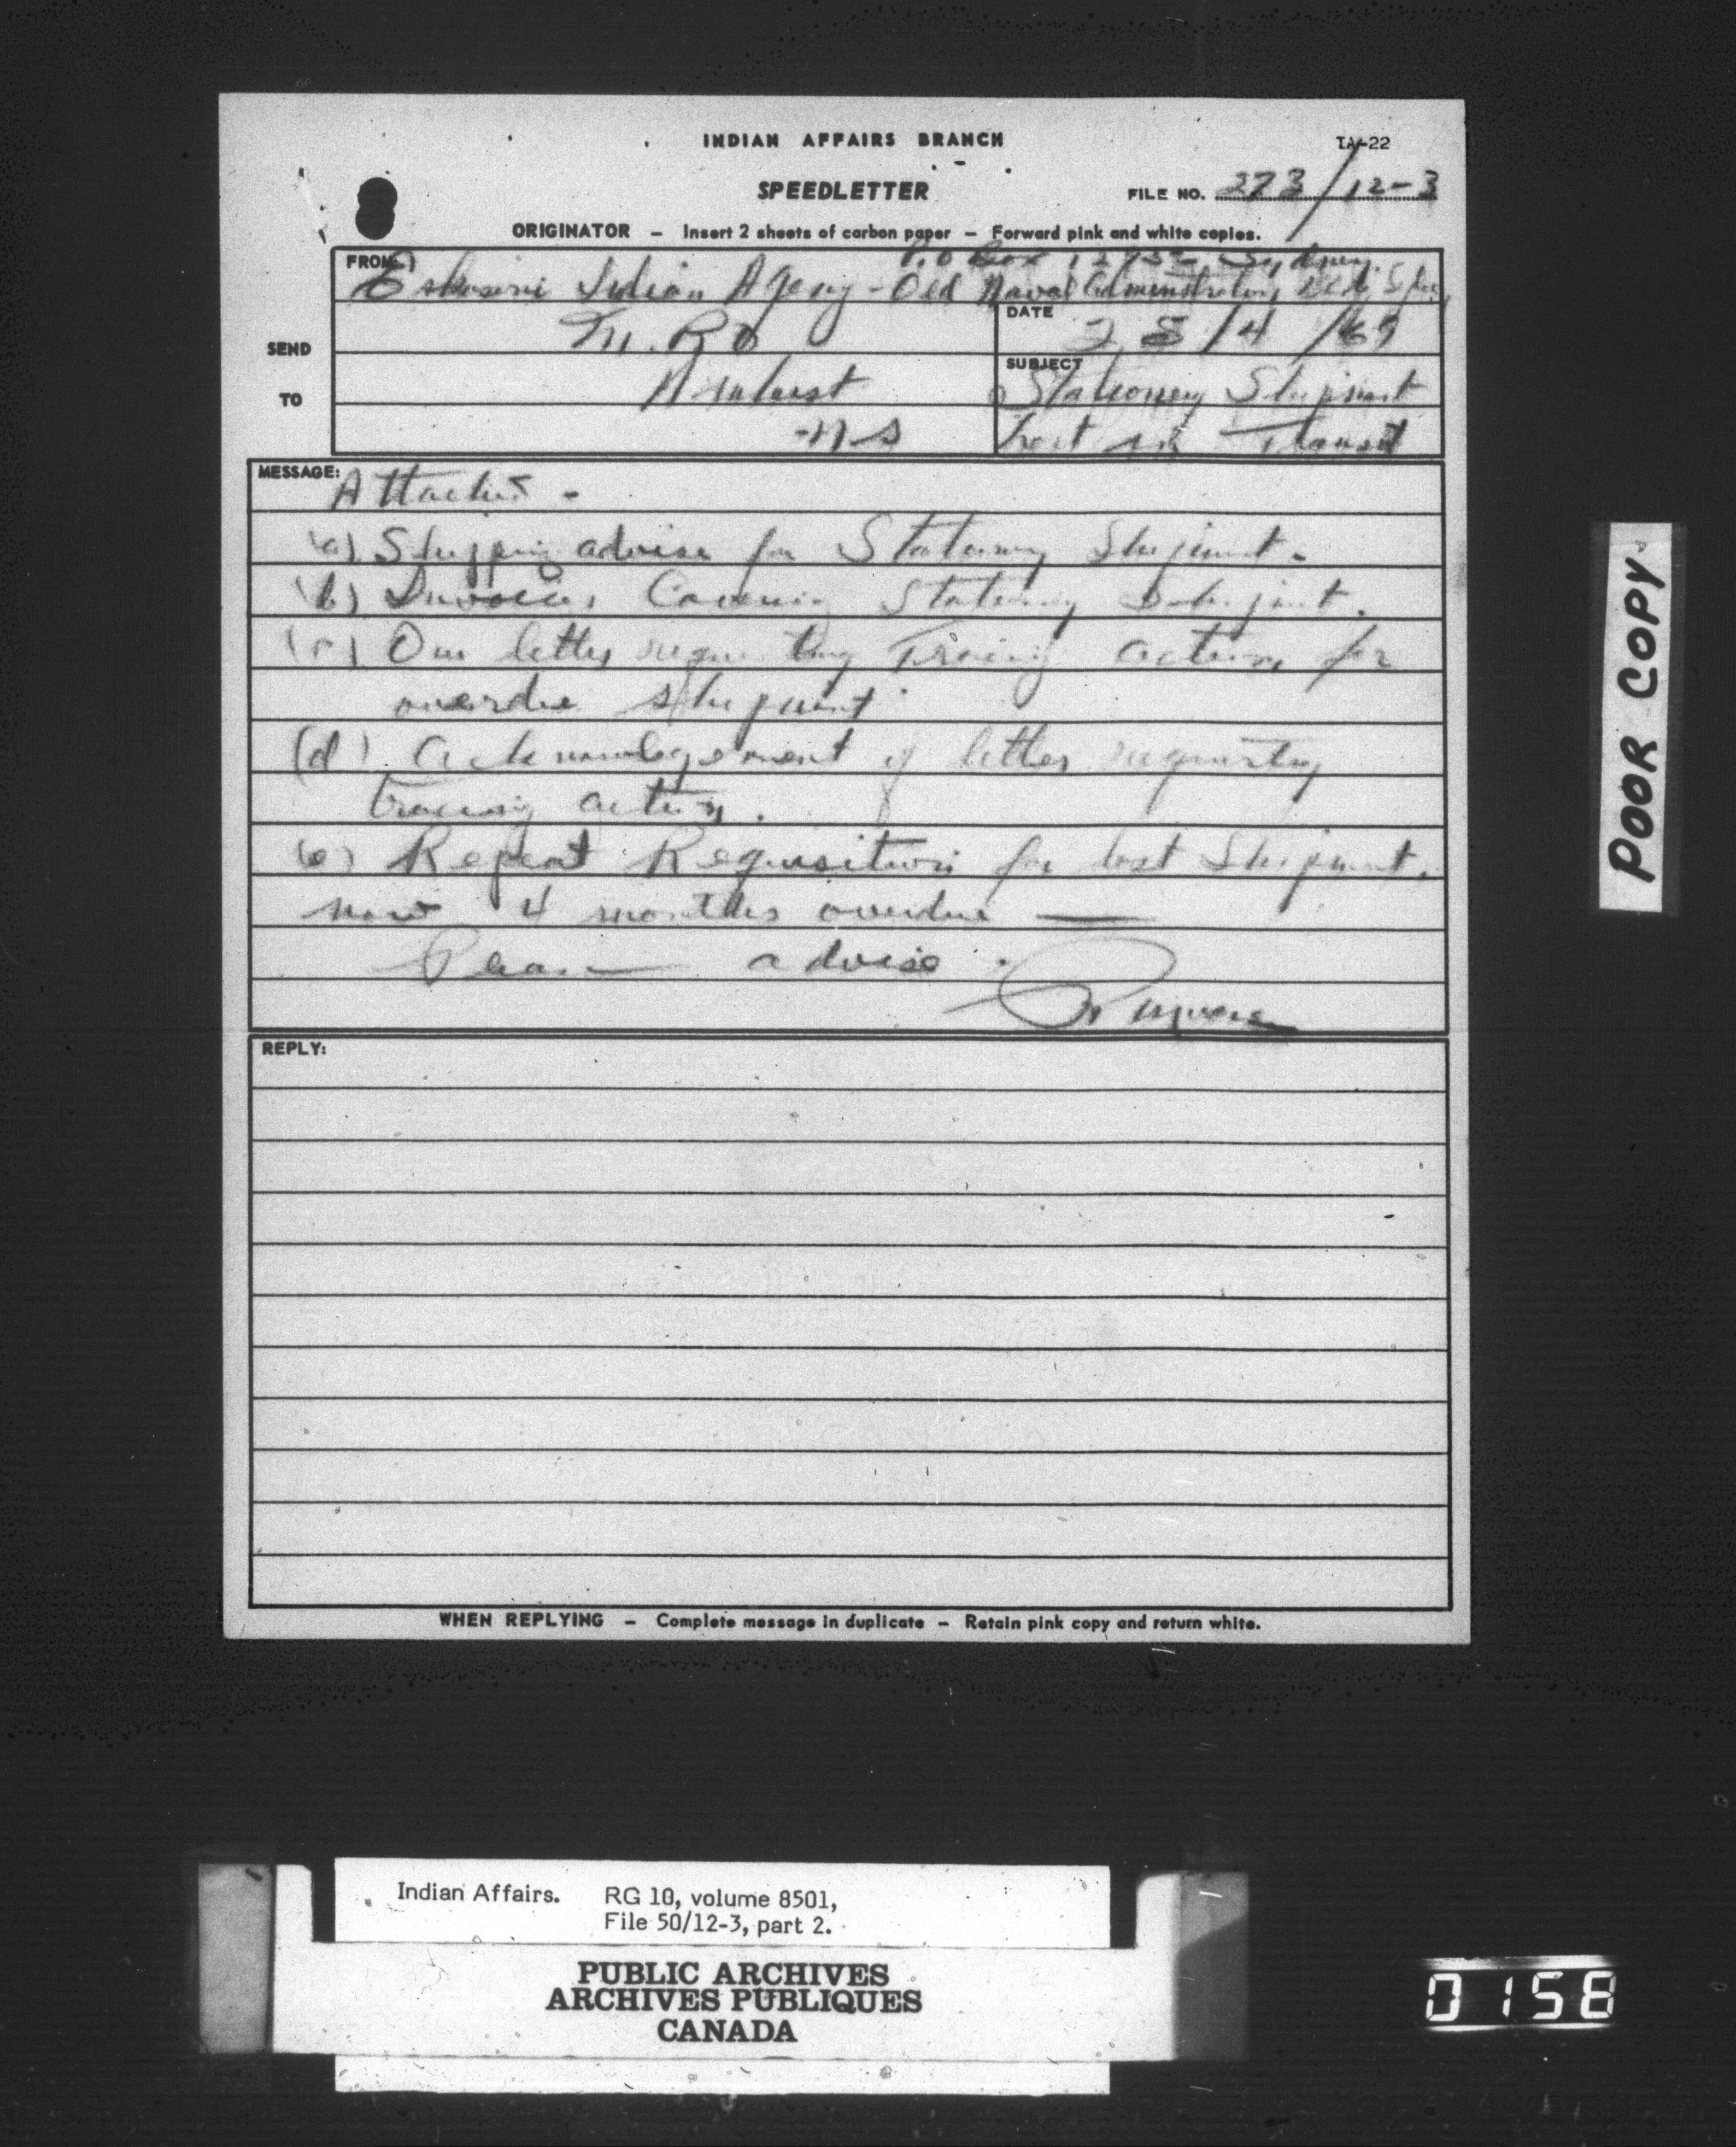 INDIAN AFFAIRS BRANCH
IA-22
SPEEDLETTER
FILE NO. 273/12-3
ORIGINATOR – Insert 2 sheets of carbon paper – Forward pink and white copies.
P.O Box Sydney.
FROM: Eskasoni Indian Agency - Old Naval Administration
SEND TO
M.RO
Amherst
-N S
DATE
28/4/67
SUBJECT
Stationery Shipment
Lost in Transit
MESSAGE:
Attached -
(a) Shipping advise for Stationery Shipment.
(b) Invoices Covering Stationery Shipment.
(c) Our letter requesting Tracing action for
overdue shipment
(d) Acknowlegement of letter requesting
tracing action.
(e) Repeat Requisition for lost Shipment.
now 4 months overdue —
Please advise.
REPLY:
WHEN REPLYING – Complete message in duplicate – Retain pink copy and return white.
POOR COPY
Indian Affairs. RG 10, volume 8501,
File 50/12-3, part 2.
PUBLIC ARCHIVES
ARCHIVES PUBLIQUES
CANADA
0158